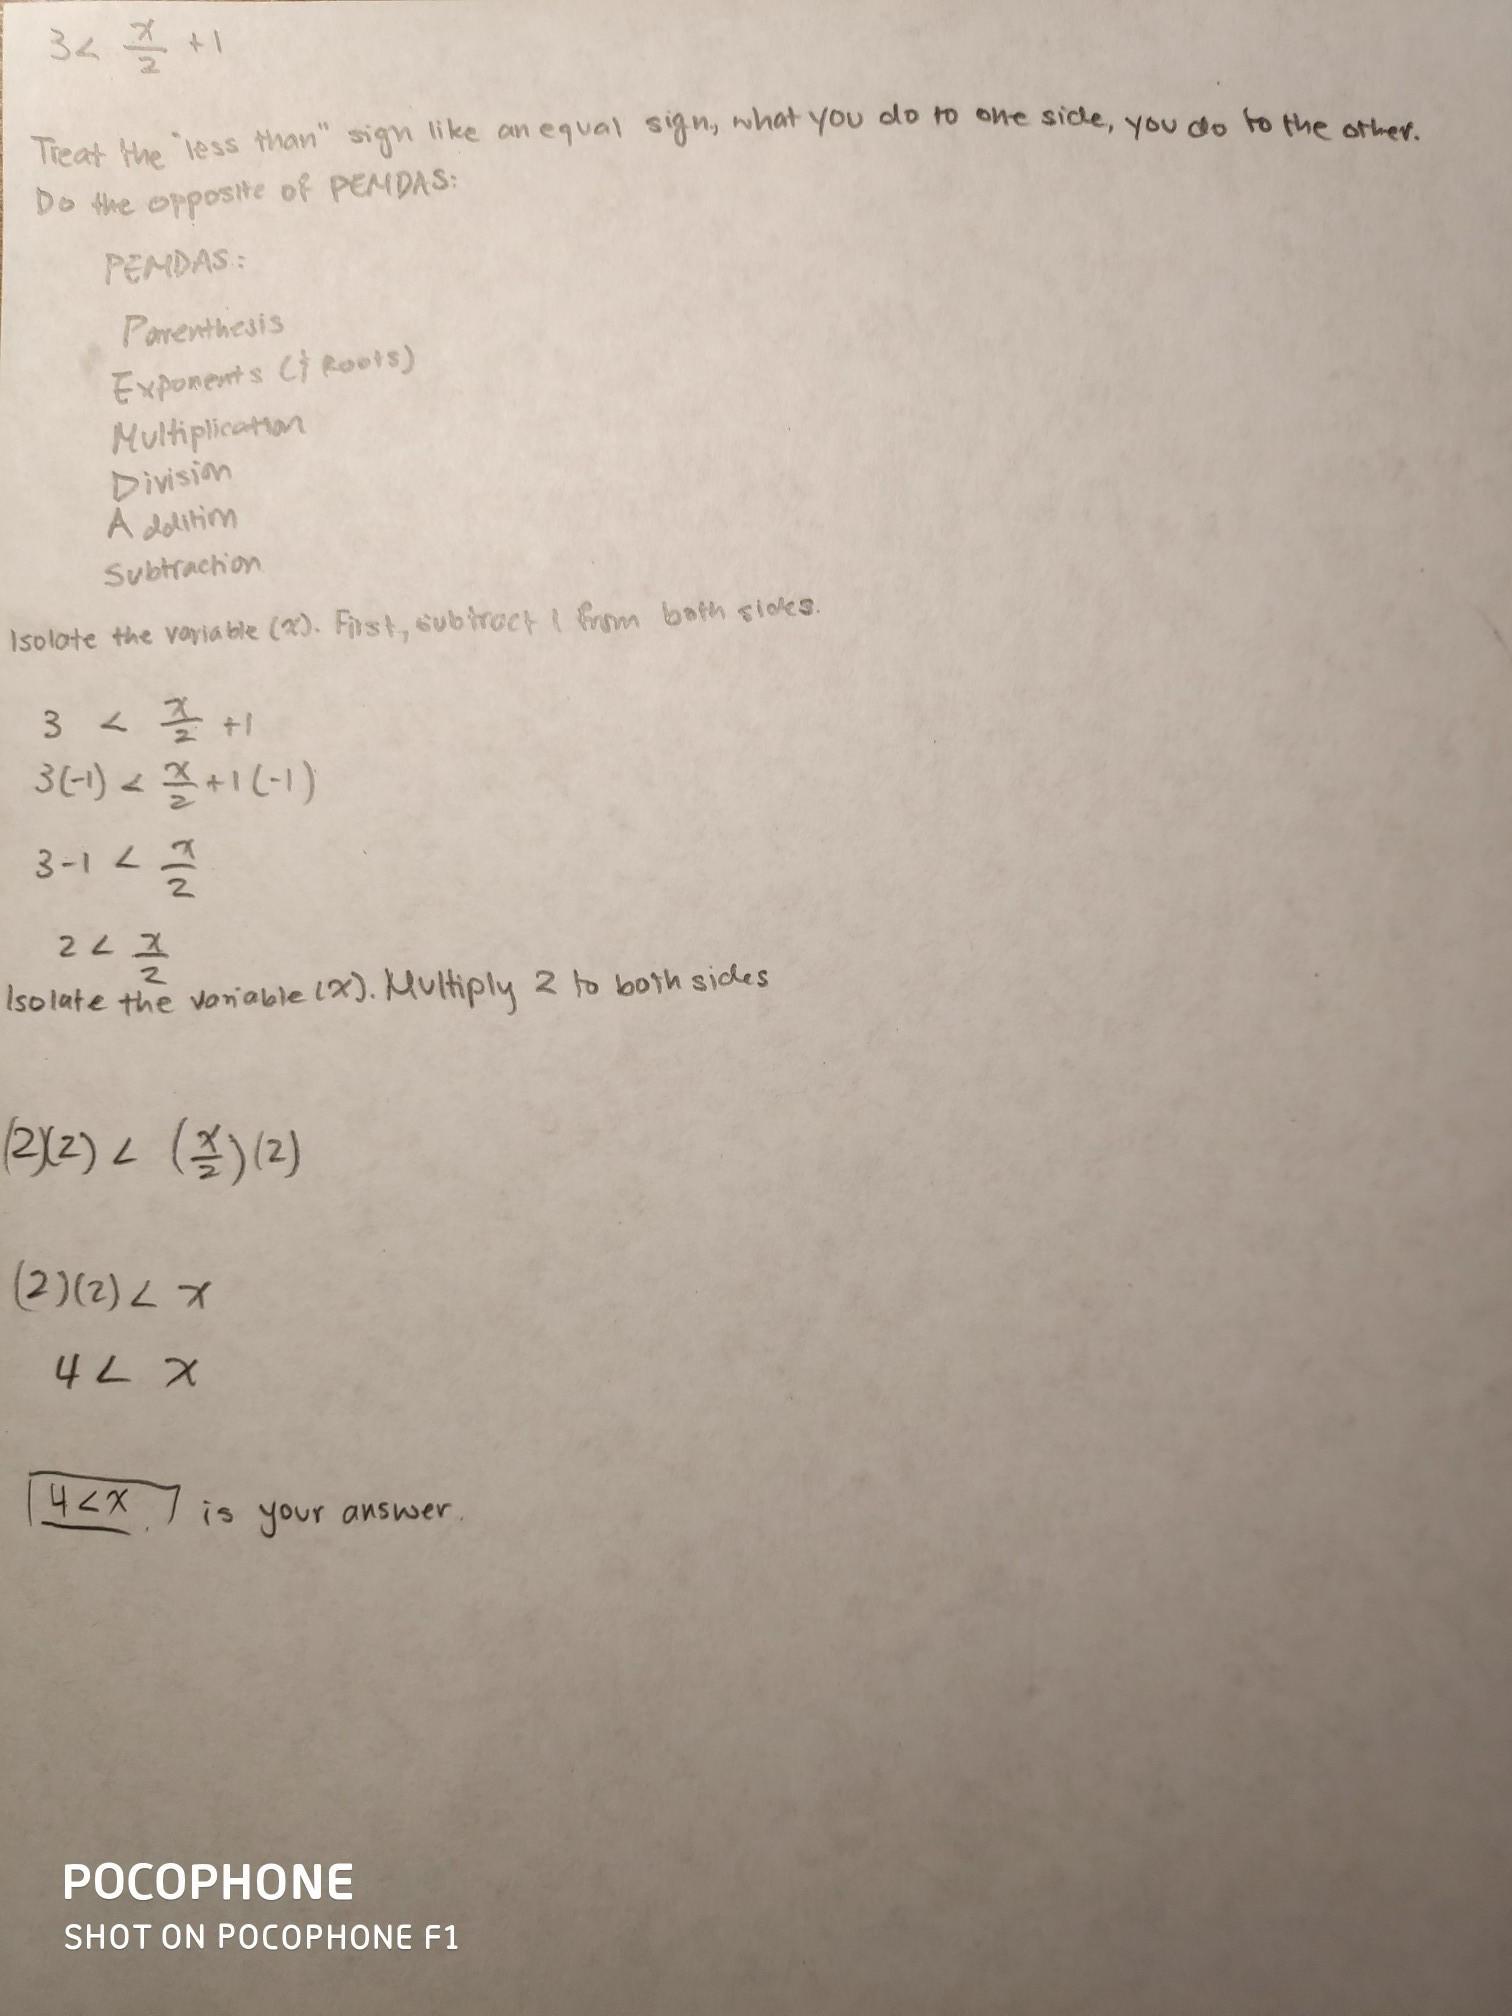 3 < x/2 + 1
Treat the "less than" sign like an equal sign, what you do to one side, you do to the other.
Do the opposite of PEMDAS:
PEMDAS:
Parenthesis
Exponents (& Roots)
Multiplication
Division
Addition
Subtraction
Isolate the variable (x). First, subtract 1 from both sides.
3 < x/2 + 1
3(-1) < x/2 + 1(-1)
3-1 < x/2
2 < x/2
Isolate the variable (x). Multiply 2 to both sides
(2)(2) < (x/2)(2)
(2)(2) < x
4 < x
4 < x is your answer.
POCOPHONE
SHOT ON POCOPHONE F1